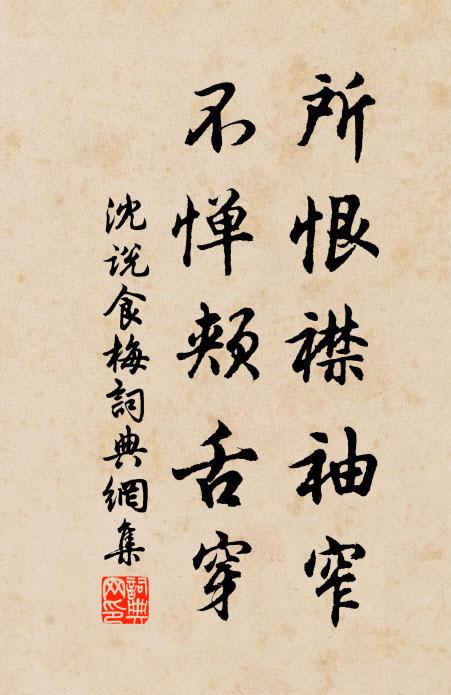 所恨襟袖窄
不惮颊舌穿
沈说食梅詞典網集
詞典网印